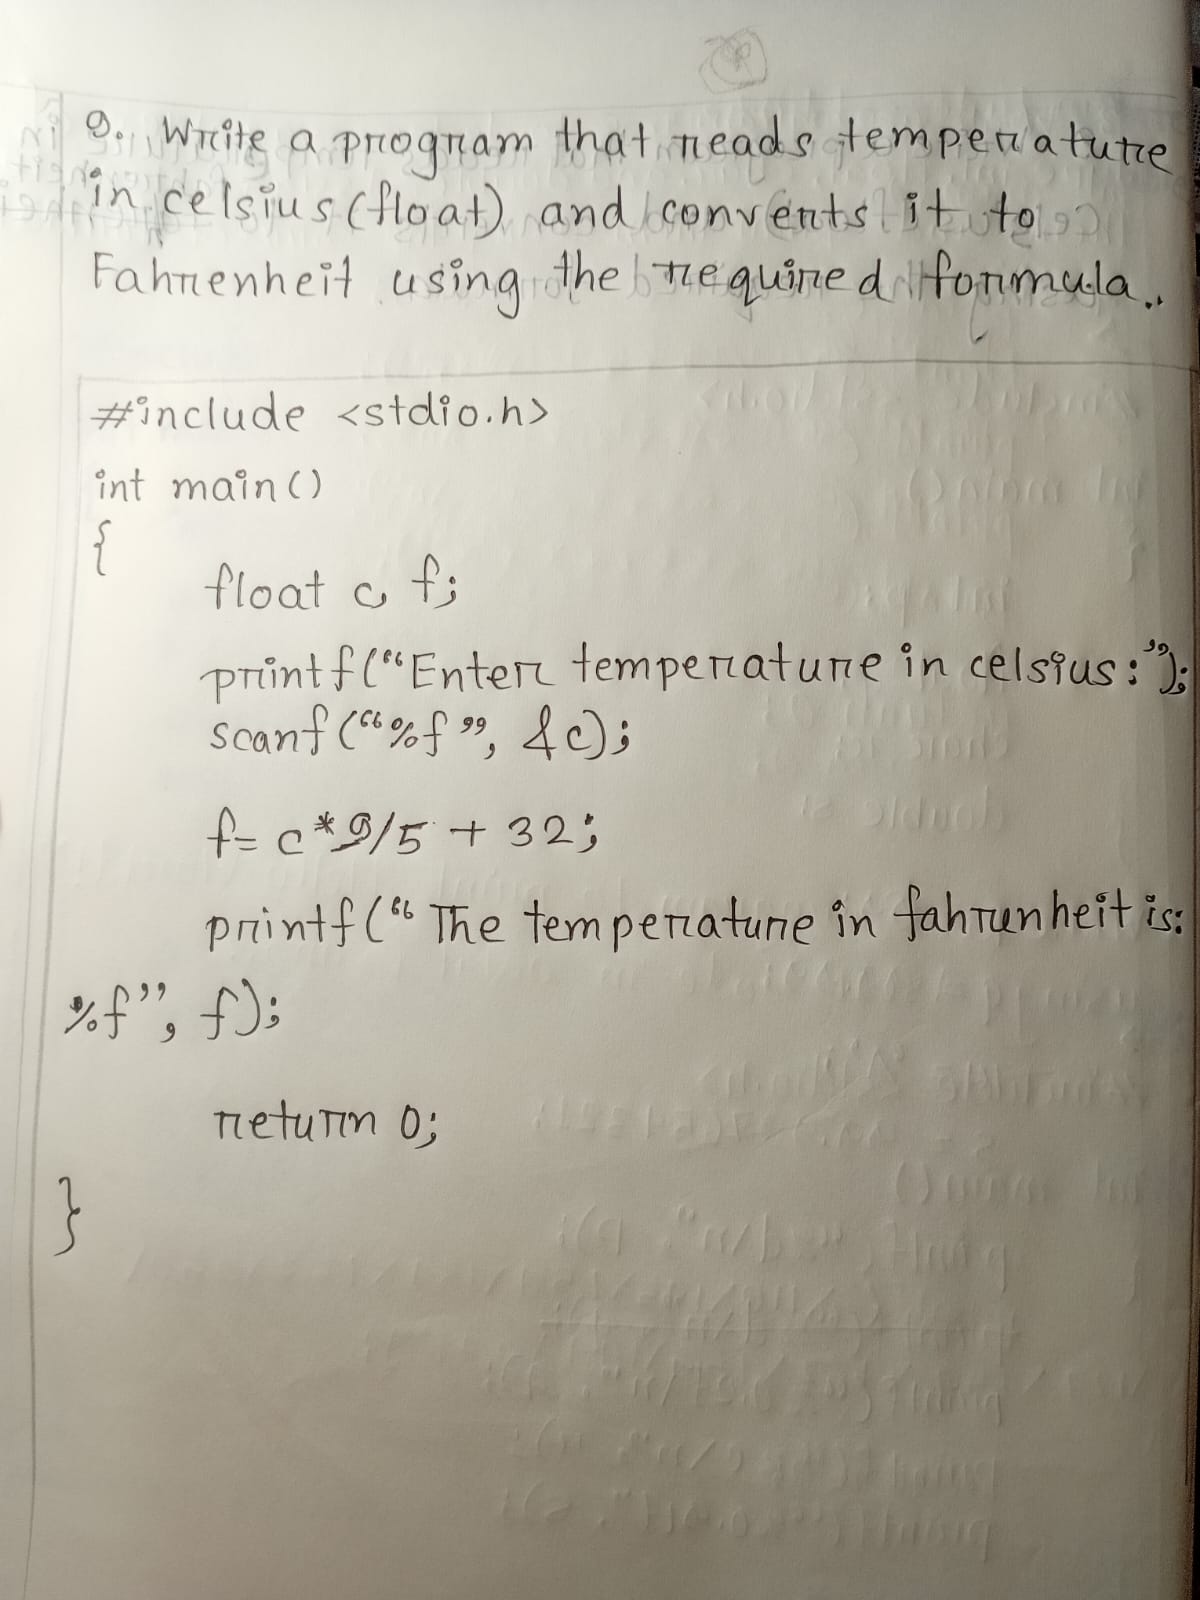 9. Write a program that reads temperature
in celsius (float) and converts it to
Fahrenheit using the required formula..
#include <stdio.h>
int main()
{
float c, f;
printf("Enter temperature in celsius:");
scanf("%f", &c);
f= c*9/5 + 32;
printf("The temperature in fahrenheit is:
%f", f);
return 0;
}